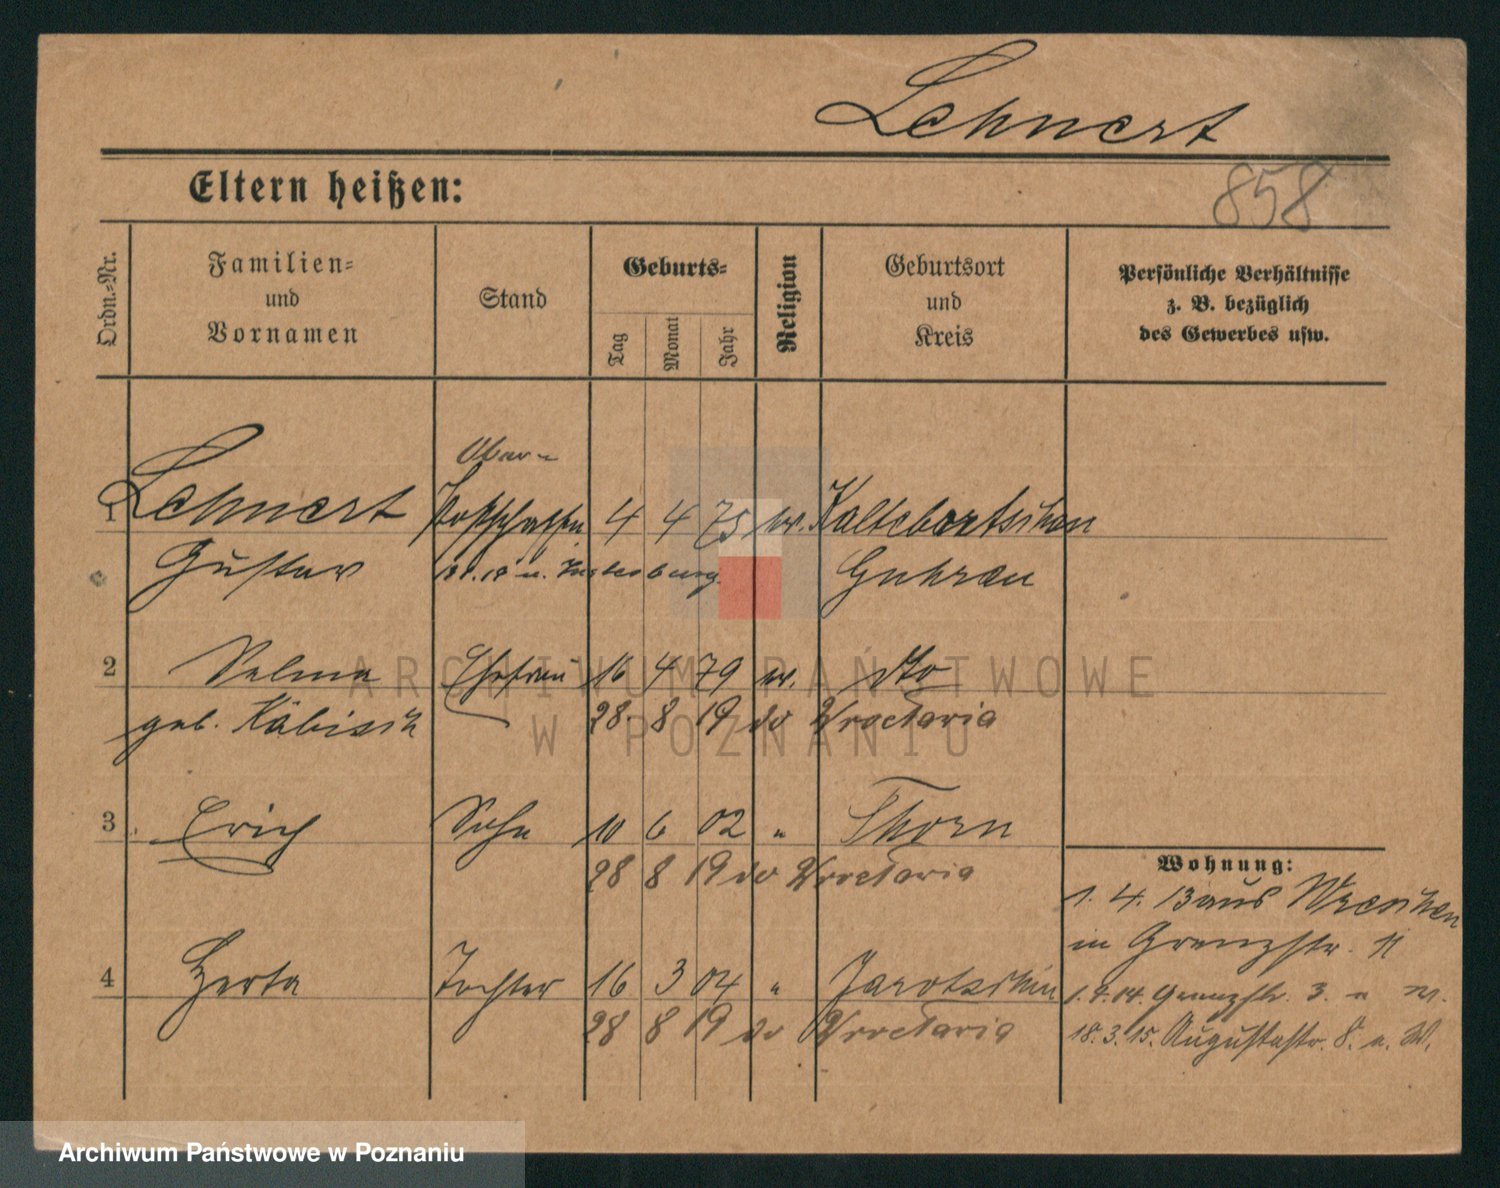 Lehnert
Eltern heißen:
858
Ordn.-Nr.
Familien-
und
Vornamen
Stand
Geburts-
Tag
Monat
Jahr
Religion
Geburtsort
und
Kreis
Persönliche Verhältnisse
z. B. bezüglich
des Gewerbes usw.
Ober-
1 Lehnert Postschaffn. 4 4 75 ev. Kaltebortschen
Gustav n. Guhrau
2 Selma Ehefrau 16 4 79 ev. dto
geb. Käbisch 28 8 19 do Wroclawia
3 Erich Sohn 10 6 02 " Thorn
28 8 19 do Wroclawia
4 Herta Tochter 16 3 04 " Jarotschin
28 8 19 do Wroclawia
Wohnung:
1. 4. 13 aus Wreschen
in Grenzstr. 11
1. 4. 14. Grenzstr. 3.
18. 3. 15. Augustastr. 8. n. W.
ARCHIWUM PAŃSTWOWE
W POZNANIU
Archiwum Państwowe w Poznaniu